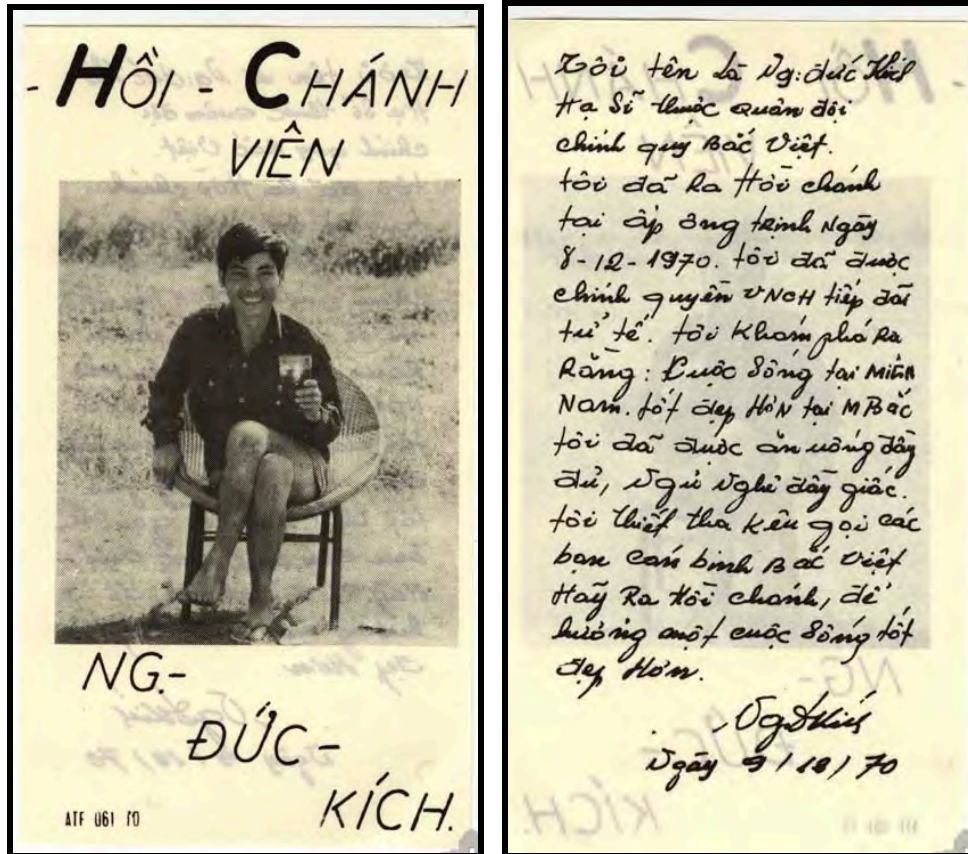 - HỒI - CHÁNH
VIÊN
NG.-
ĐỨC-
KÍCH.
ATF 061 70
Tôi tên là Ng: đức Kích
Hạ Sĩ thuộc quân đội
chính quy Bắc Việt.
tôi đã ra Hồi chánh
tại ấp ông trịnh Ngày
8-12-1970. tôi đã được
chính quyền VNCH tiếp đãi
tử tế. tôi Khám phá Ra
Rằng: Cuộc Sống tại Miền
Nam. tốt đẹp Hơn tại M Bắc
tôi đã được ăn uống đầy
đủ, Ngủ Nghỉ đầy giấc.
tôi thiết tha kêu gọi các
bạn cán binh Bắc Việt
Hãy Ra Hồi chánh, để
hưởng một cuộc Sống tốt
đẹp Hơn.
Ngày 9/12/70